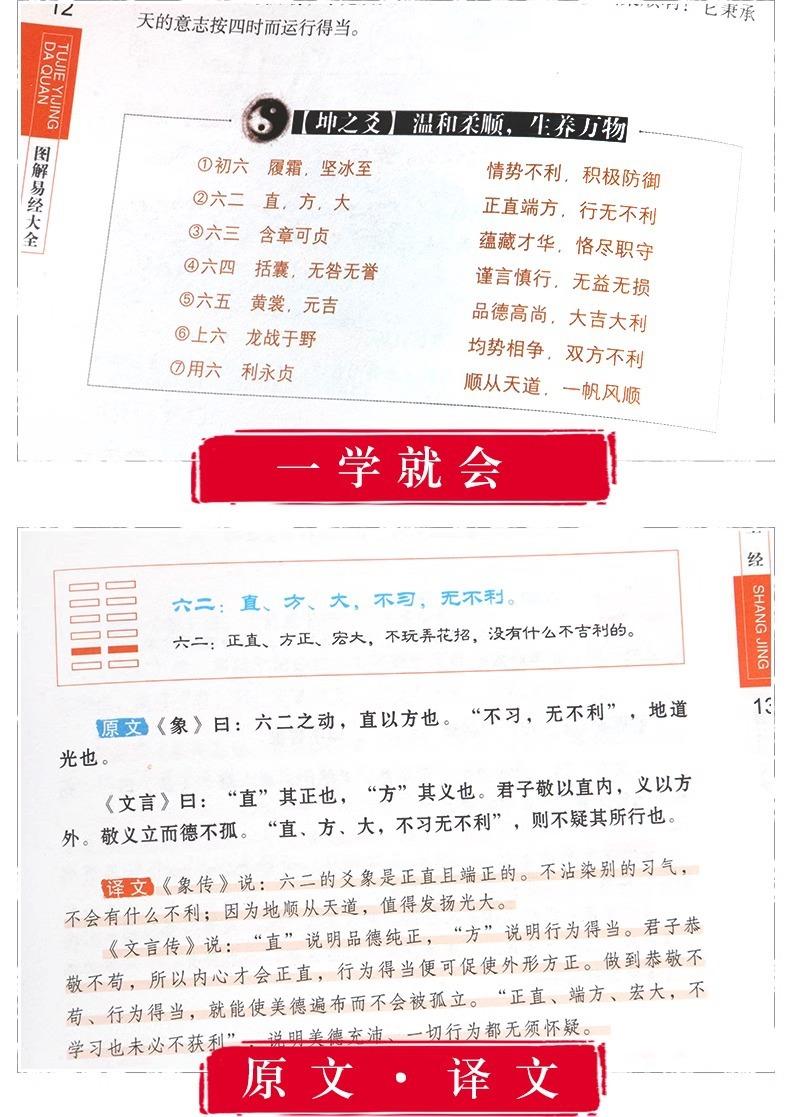 12
天的意志按四时而运行得当。
秉承
TUJIE YIJING
DA QUAN
图解易经大全
【坤之爻】温和柔顺，生养万物
①初六 履霜，坚冰至 情势不利，积极防御
②六二 直，方，大 正直端方，行无不利
③六三 含章可贞 蕴藏才华，恪尽职守
④六四 括囊，无咎无誉 谨言慎行，无益无损
⑤六五 黄裳，元吉 品德高尚，大吉大利
⑥上六 龙战于野 均势相争，双方不利
⑦用六 利永贞 顺从天道，一帆风顺
一学就会
经
SHANG JING
13
六二：直、方、大，不习，无不利。
六二：正直、方正、宏大，不玩弄花招，没有什么不吉利的。
原文《象》曰：六二之动，直以方也。“不习，无不利”，地道
光也。
《文言》曰：“直”其正也，“方”其义也。君子敬以直内，义以方
外。敬义立而德不孤。“直、方、大，不习无不利”，则不疑其所行也。
译文《象传》说：六二的爻象是正直且端正的。不沾染别的习气，
不会有什么不利；因为地顺从天道，值得发扬光大。
《文言传》说：“直”说明品德纯正，“方”说明行为得当。君子恭
敬不苟，所以内心才会正直，行为得当便可促使外形方正。做到恭敬不
苟、行为得当，就能使美德遍布而不会被孤立。“正直、端方、宏大，不
学习也未必不获利”，说明美德充沛、一切行为都无须怀疑。
原文·译文